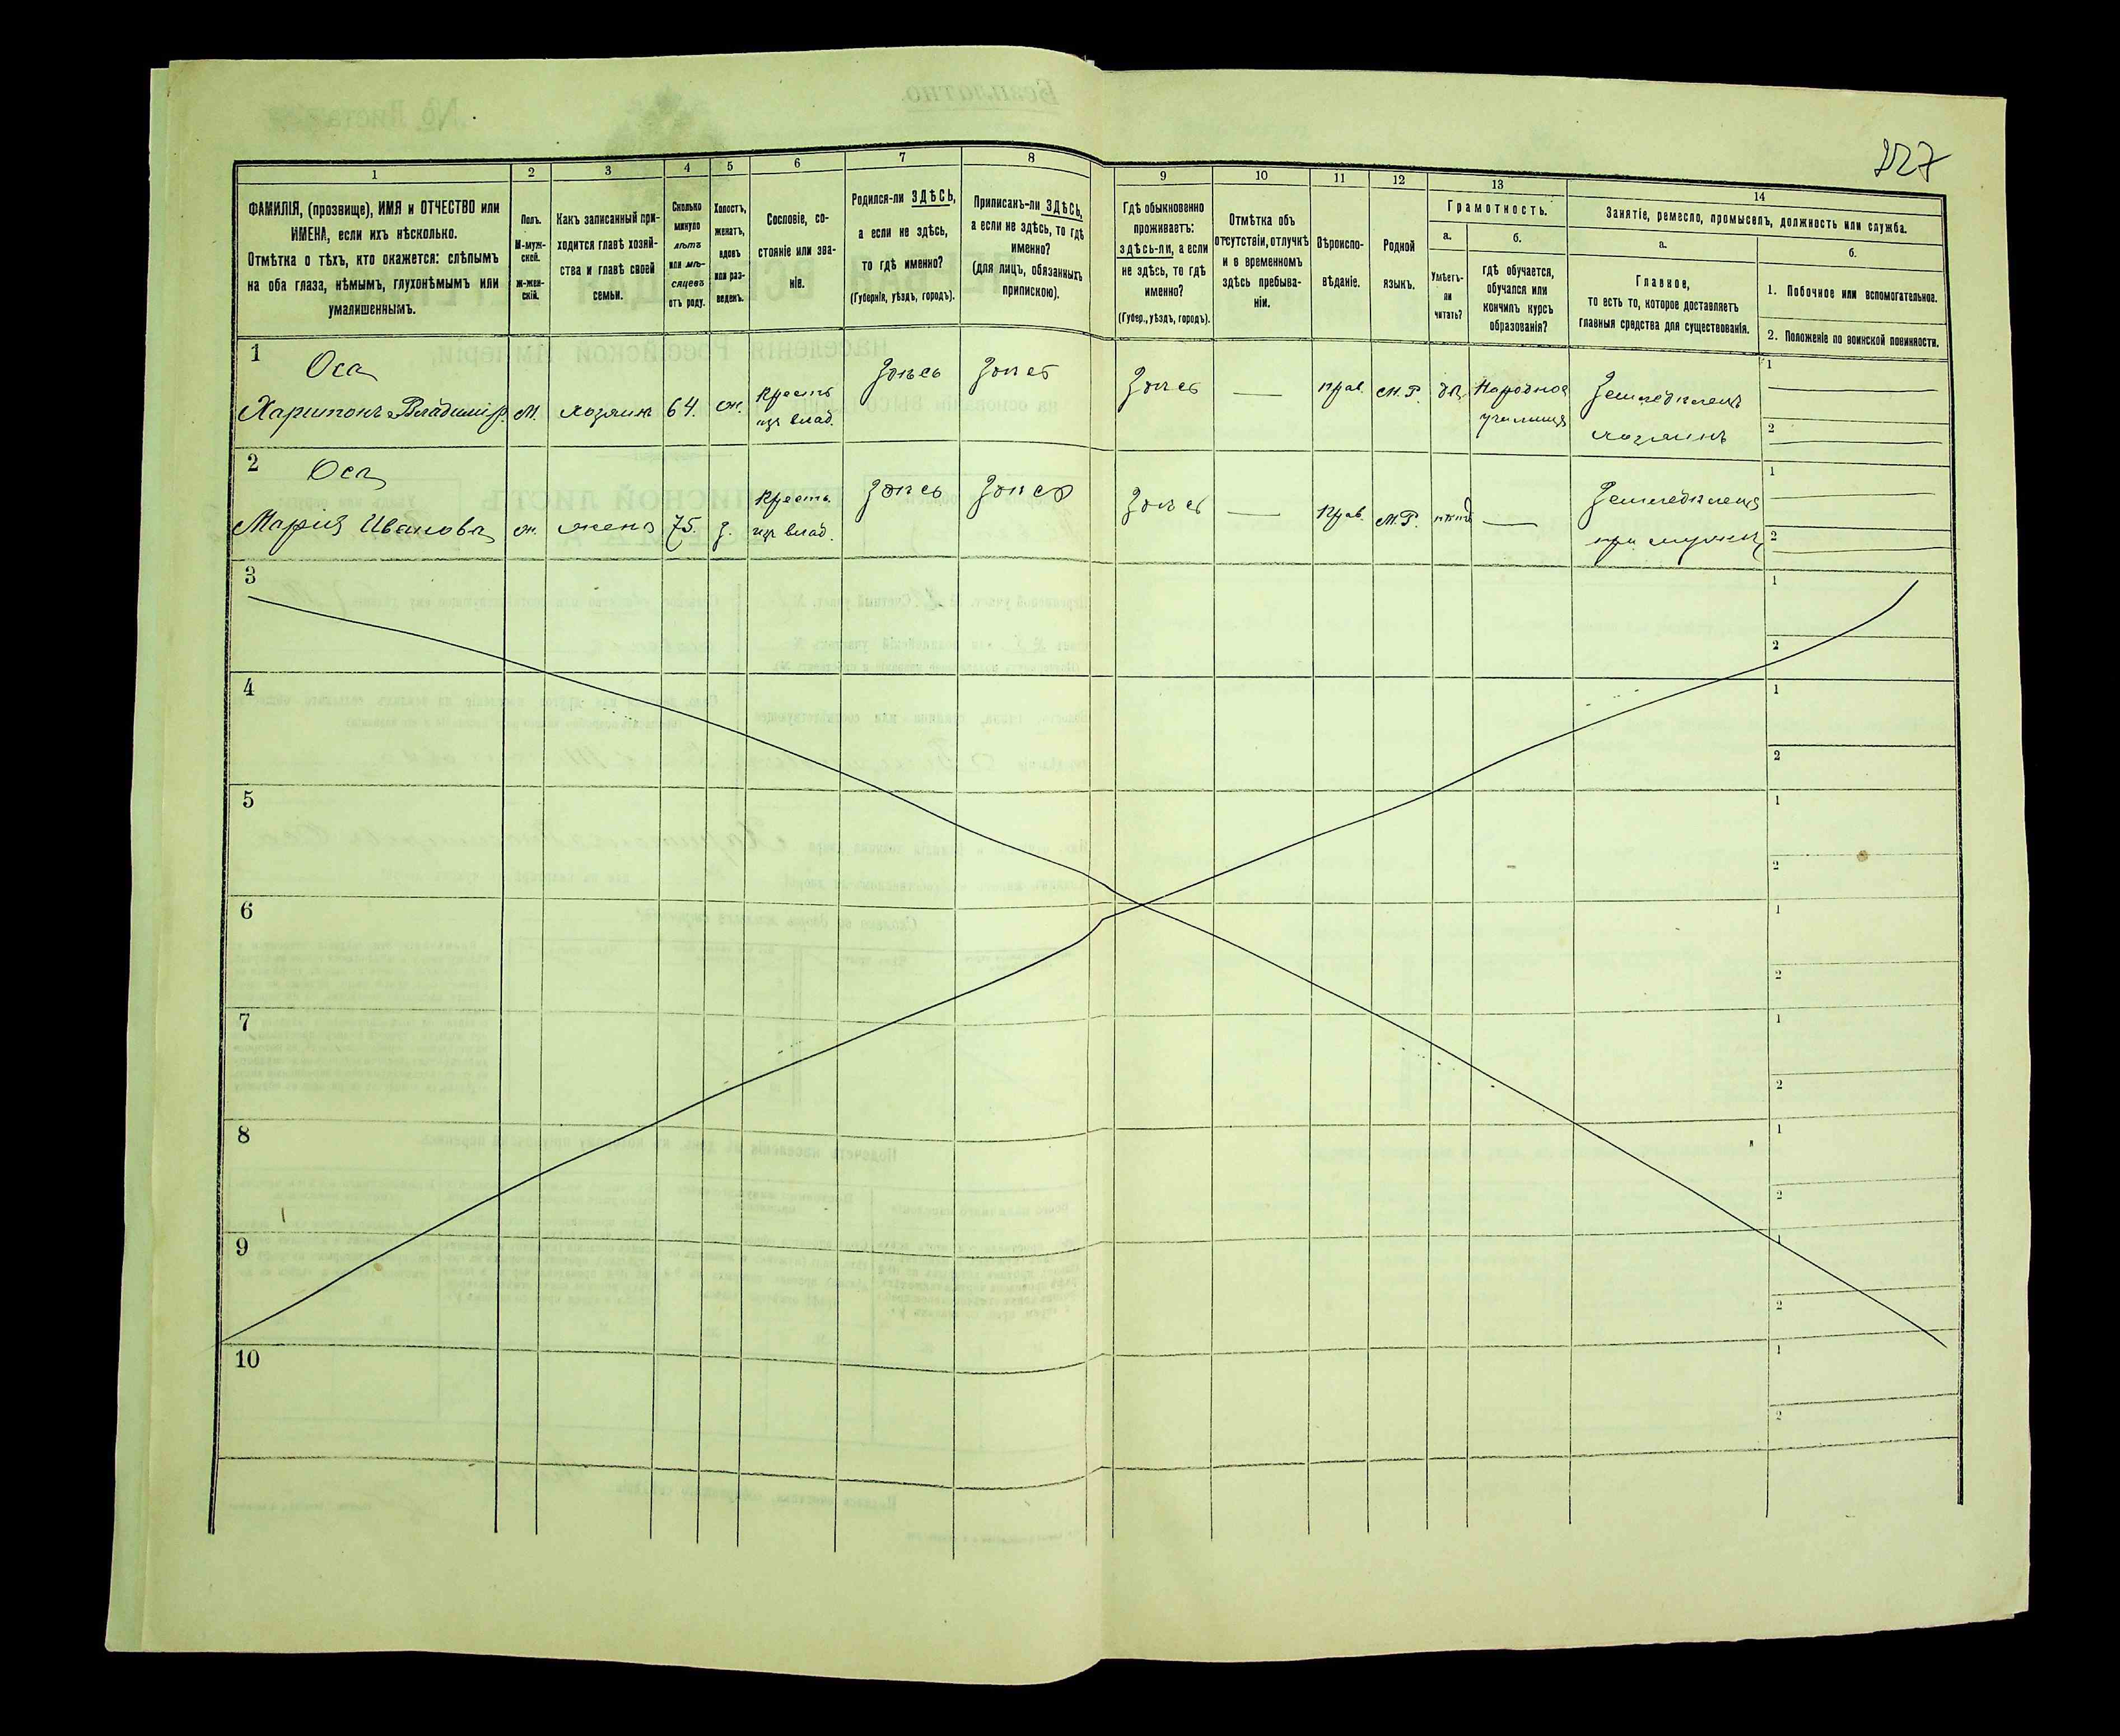 227
1
2
3
4
5
6
7
8
9
10
11
12
13
14
ФАМИЛІЯ, (прозвище), ИМЯ и ОТЧЕСТВО или
ИМЕНА, если ихъ нѣсколько.
Отмѣтка о тѣхъ, кто окажется: слѣпымъ
на оба глаза, нѣмымъ, глухонѣмымъ или
умалишеннымъ.
Полъ.
М-муж-
ской.
ж-жен-
скій.
Какъ записанный при-
ходится главѣ хозяй-
ства и главѣ своей
семьи.
Сколько
минуло
лѣтъ
или мѣ-
сяцевъ
отъ роду.
Холостъ,
женатъ,
вдовъ
или раз-
веденъ.
Сословіе, со-
стояніе или зва-
ніе.
Родился-ли ЗДѢСЬ,
а если не здѣсь,
то гдѣ именно?
(Губернія, уѣздъ, городъ).
Приписанъ-ли ЗДѢСЬ,
а если не здѣсь, то гдѣ
именно?
(для лицъ, обязанныхъ
припискою).
Гдѣ обыкновенно
проживаетъ:
здѣсь-ли, а если
не здѣсь, то гдѣ
именно?
(Губер., уѣздъ, городъ).
Отмѣтка объ
отсутствіи, отлучкѣ
и о временномъ
здѣсь пребыва-
ніи.
Вѣроиспо-
вѣданіе.
Родной
языкъ.
Грамотность.
а.
Умѣетъ-
ли
читать?
б.
гдѣ обучается,
обучался или
кончилъ курсъ
образованія?
Занятіе, ремесло, промыселъ, должность или служба.
а.
Главное,
то есть то, которое доставляетъ
главныя средства для существованія.
б.
1. Побочное или вспомогательное.
2. Положеніе по воинской повинности.
1
Оса
Харитонъ Владимір.
м.
хозяин
64.
ж.
Крестъ
изъ влад.
Здѣсь
Здѣсь
Здѣсь
прав.
М.Р.
да
Народное
училище
Земледѣлецъ
хозяинъ
1
2
2
Оса
Марія Иванова
ж.
жена
75.
з.
Крестъ.
изъ влад.
Здѣсь
Здѣсь
Здѣсь
Прав.
М.Р.
нѣтъ
Земледѣлецъ
при мужѣ
1
2
3
1
2
4
1
2
5
1
2
6
1
2
7
1
2
8
1
2
9
1
2
10
1
2